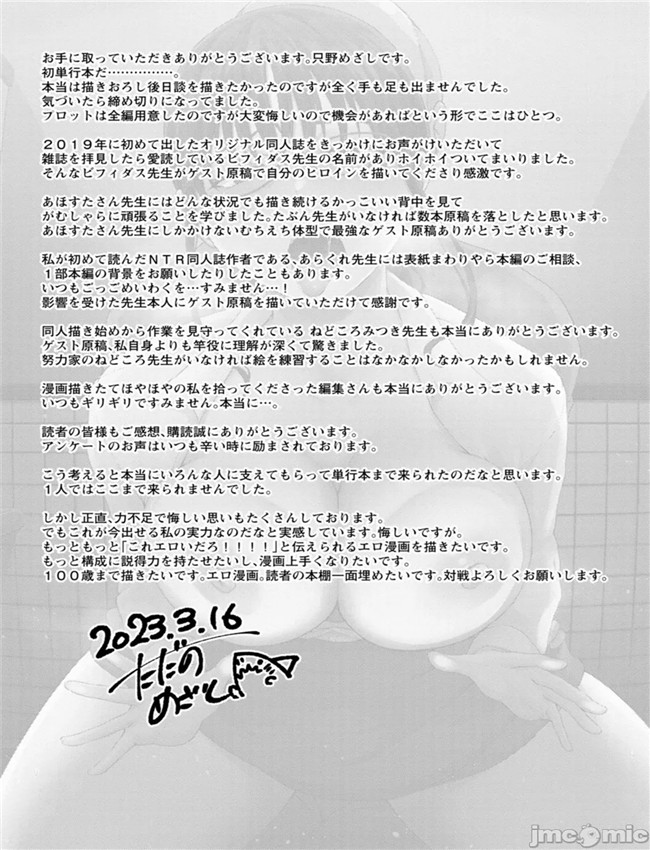 お手に取っていただきありがとうございます。只野めざしです。
初単行本だ……………。
本当は描きおろし後日談を描きたかったのですが全く手も足も出ませんでした。
気づいたら締め切りになってました。
プロットは全編用意したのですが大変悔しいので機会があればという形でここはひとつ。
２０１９年に初めて出したオリジナル同人誌をきっかけにお声がけいただいて
雑誌を拝見したら愛読しているビフィダス先生の名前がありホイホイついてまいりました。
そんなビフィダス先生がゲスト原稿で自分のヒロインを描いてくださり感激です。
あほすたさん先生にはどんな状況でも描き続けるかっこいい背中を見て
がむしゃらに頑張ることを学びました。たぶん先生がいなければ数本原稿を落としたと思います。
あほすたさん先生にしかかけないむちえち体型で最強なゲスト原稿ありがとうございます。
私が初めて読んだＮＴＲ同人誌作者である、あらくれ先生には表紙まわりやら本編のご相談、
１部本編の背景をお願いしたりしたこともあります。
いつもごっごめいわくを…すみません…！
影響を受けた先生本人にゲスト原稿を描いていただけて感謝です。
同人描き始めから作業を見守ってくれている ねどころみつき先生も本当にありがとうございます。
ゲスト原稿、私自身よりも竿役に理解が深くて驚きました。
努力家のねどころ先生がいなければ絵を練習することはなかなかしなかったかもしれません。
漫画描きたてほやほやの私を拾ってくださった編集さんも本当にありがとうございます。
いつもギリギリですみません。本当に…。
読者の皆様もご感想、購読誠にありがとうございます。
アンケートのお声はいつも辛い時に励まされております。
こう考えると本当にいろんな人に支えてもらって単行本まで来られたのだなと思います。
１人ではここまで来られませんでした。
しかし正直、力不足で悔しい思いもたくさんしております。
でもこれが今出せる私の実力なのだなと実感しています。悔しいですが。
もっともっと「これエロいだろ！！！！」と伝えられるエロ漫画を描きたいです。
もっと構成に説得力を持たせたいし、漫画上手くなりたいです。
１００歳まで描きたいです。エロ漫画。読者の本棚一面埋めたいです。対戦よろしくお願いします。
2023.3.16
ただの
めざし
jmcomic